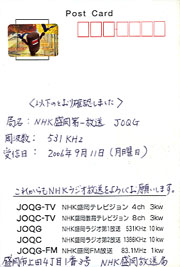 Post Card
＜以下のとおり確認しました＞
局名：NHK盛岡第一放送 JOQG
周波数： 531 KHz
受信日： 2006年9月11日（月曜日）
これからもNHKラジオ放送をよろしくお願いします。
JOQG-TV NHK盛岡テレビジョン 4ch 3kw
JOQC-TV NHK盛岡教育テレビジョン 8ch 3kw
JOQG NHK盛岡ラジオ第1放送 531KHz 10kw
JOQC NHK盛岡ラジオ第2放送 1386KHz 10kw
JOQG-FM NHK盛岡FM放送 83.1MHz 1kw
盛岡市上田4丁目1番3号 NHK盛岡放送局